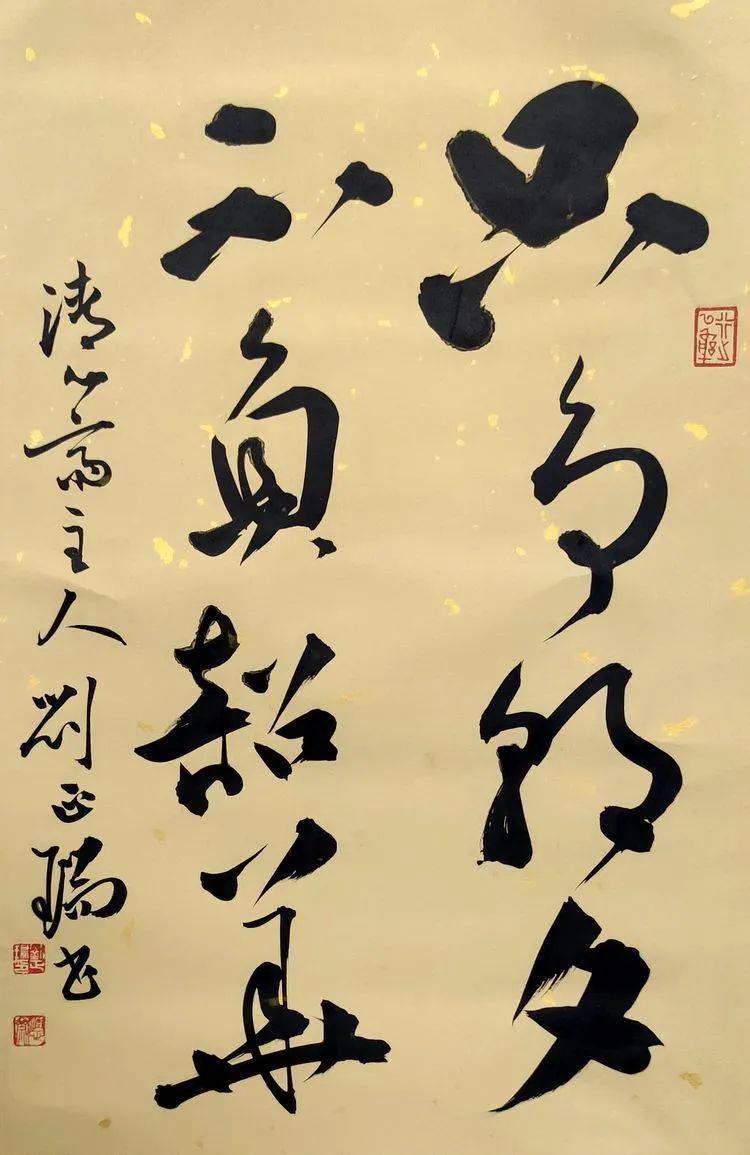 只争朝夕
不負韶華
清心斋主人劉正瑞书